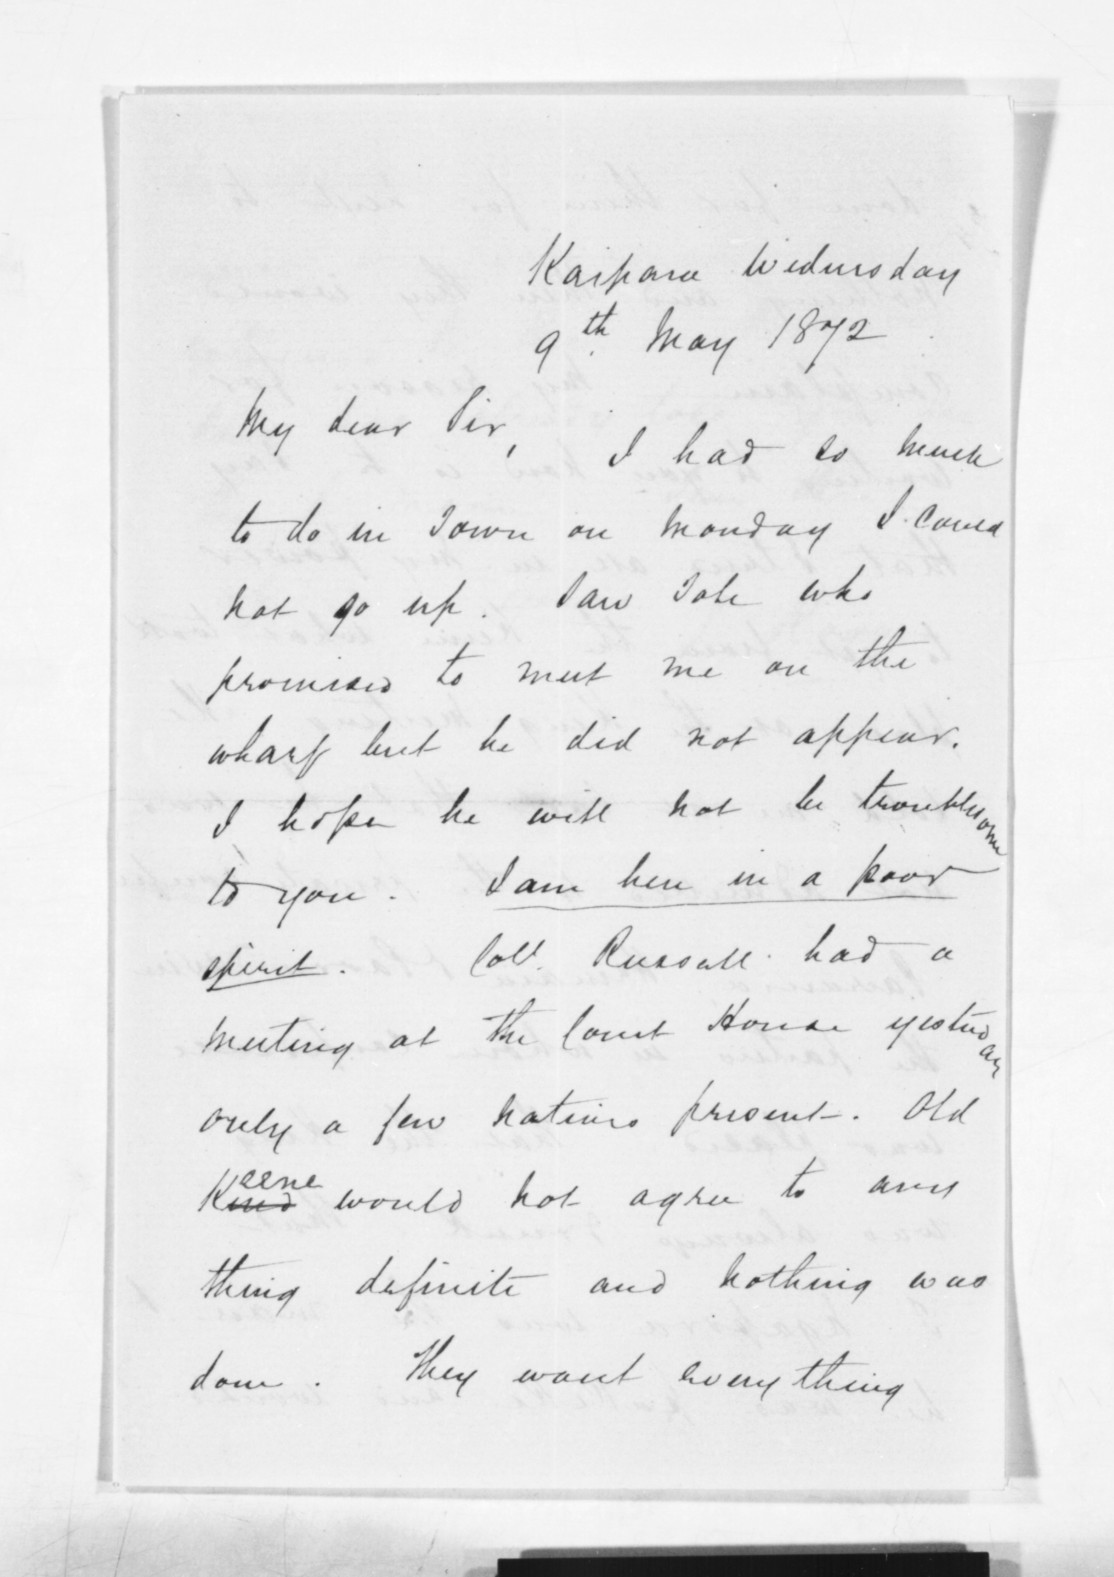 Kaipara Wednesday
9th May 1872
My dear Sir, I had so much
to do in Town on Monday I could
not go up. Saw Tole who
promised to meet me on the
wharf but he did not appear.
I hope he will not be troublesome
to you. I am here in a poor
spirit. Coll. Russell had a
meeting at the Court House yesterday
only a few natives present. Old
Keene would not agree to any
thing definite and nothing was
done. They want every thing